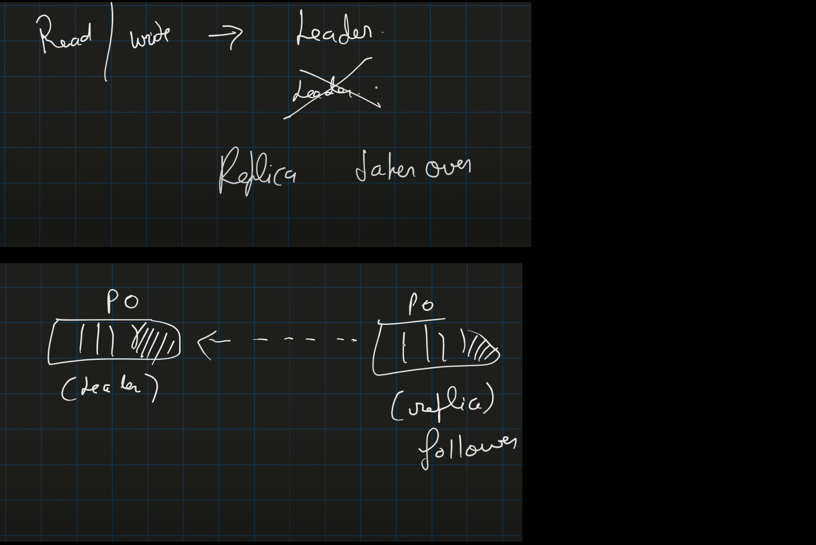 Read / write → Leader.
Leader.
Replica takes over
P0 P0
(Leader) (replica)
follower